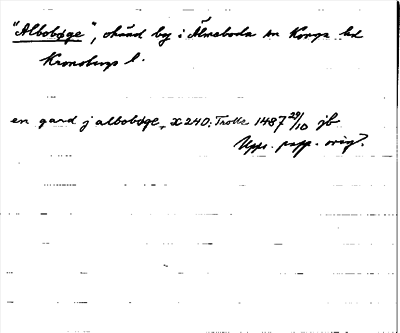 "Albobøge", okänd by i Älmeboda sn Konga hd
Kronobergs l.
en gard j albobøge, X 240: Trolle 1487 29/10 jb
Upps. papp. orig.